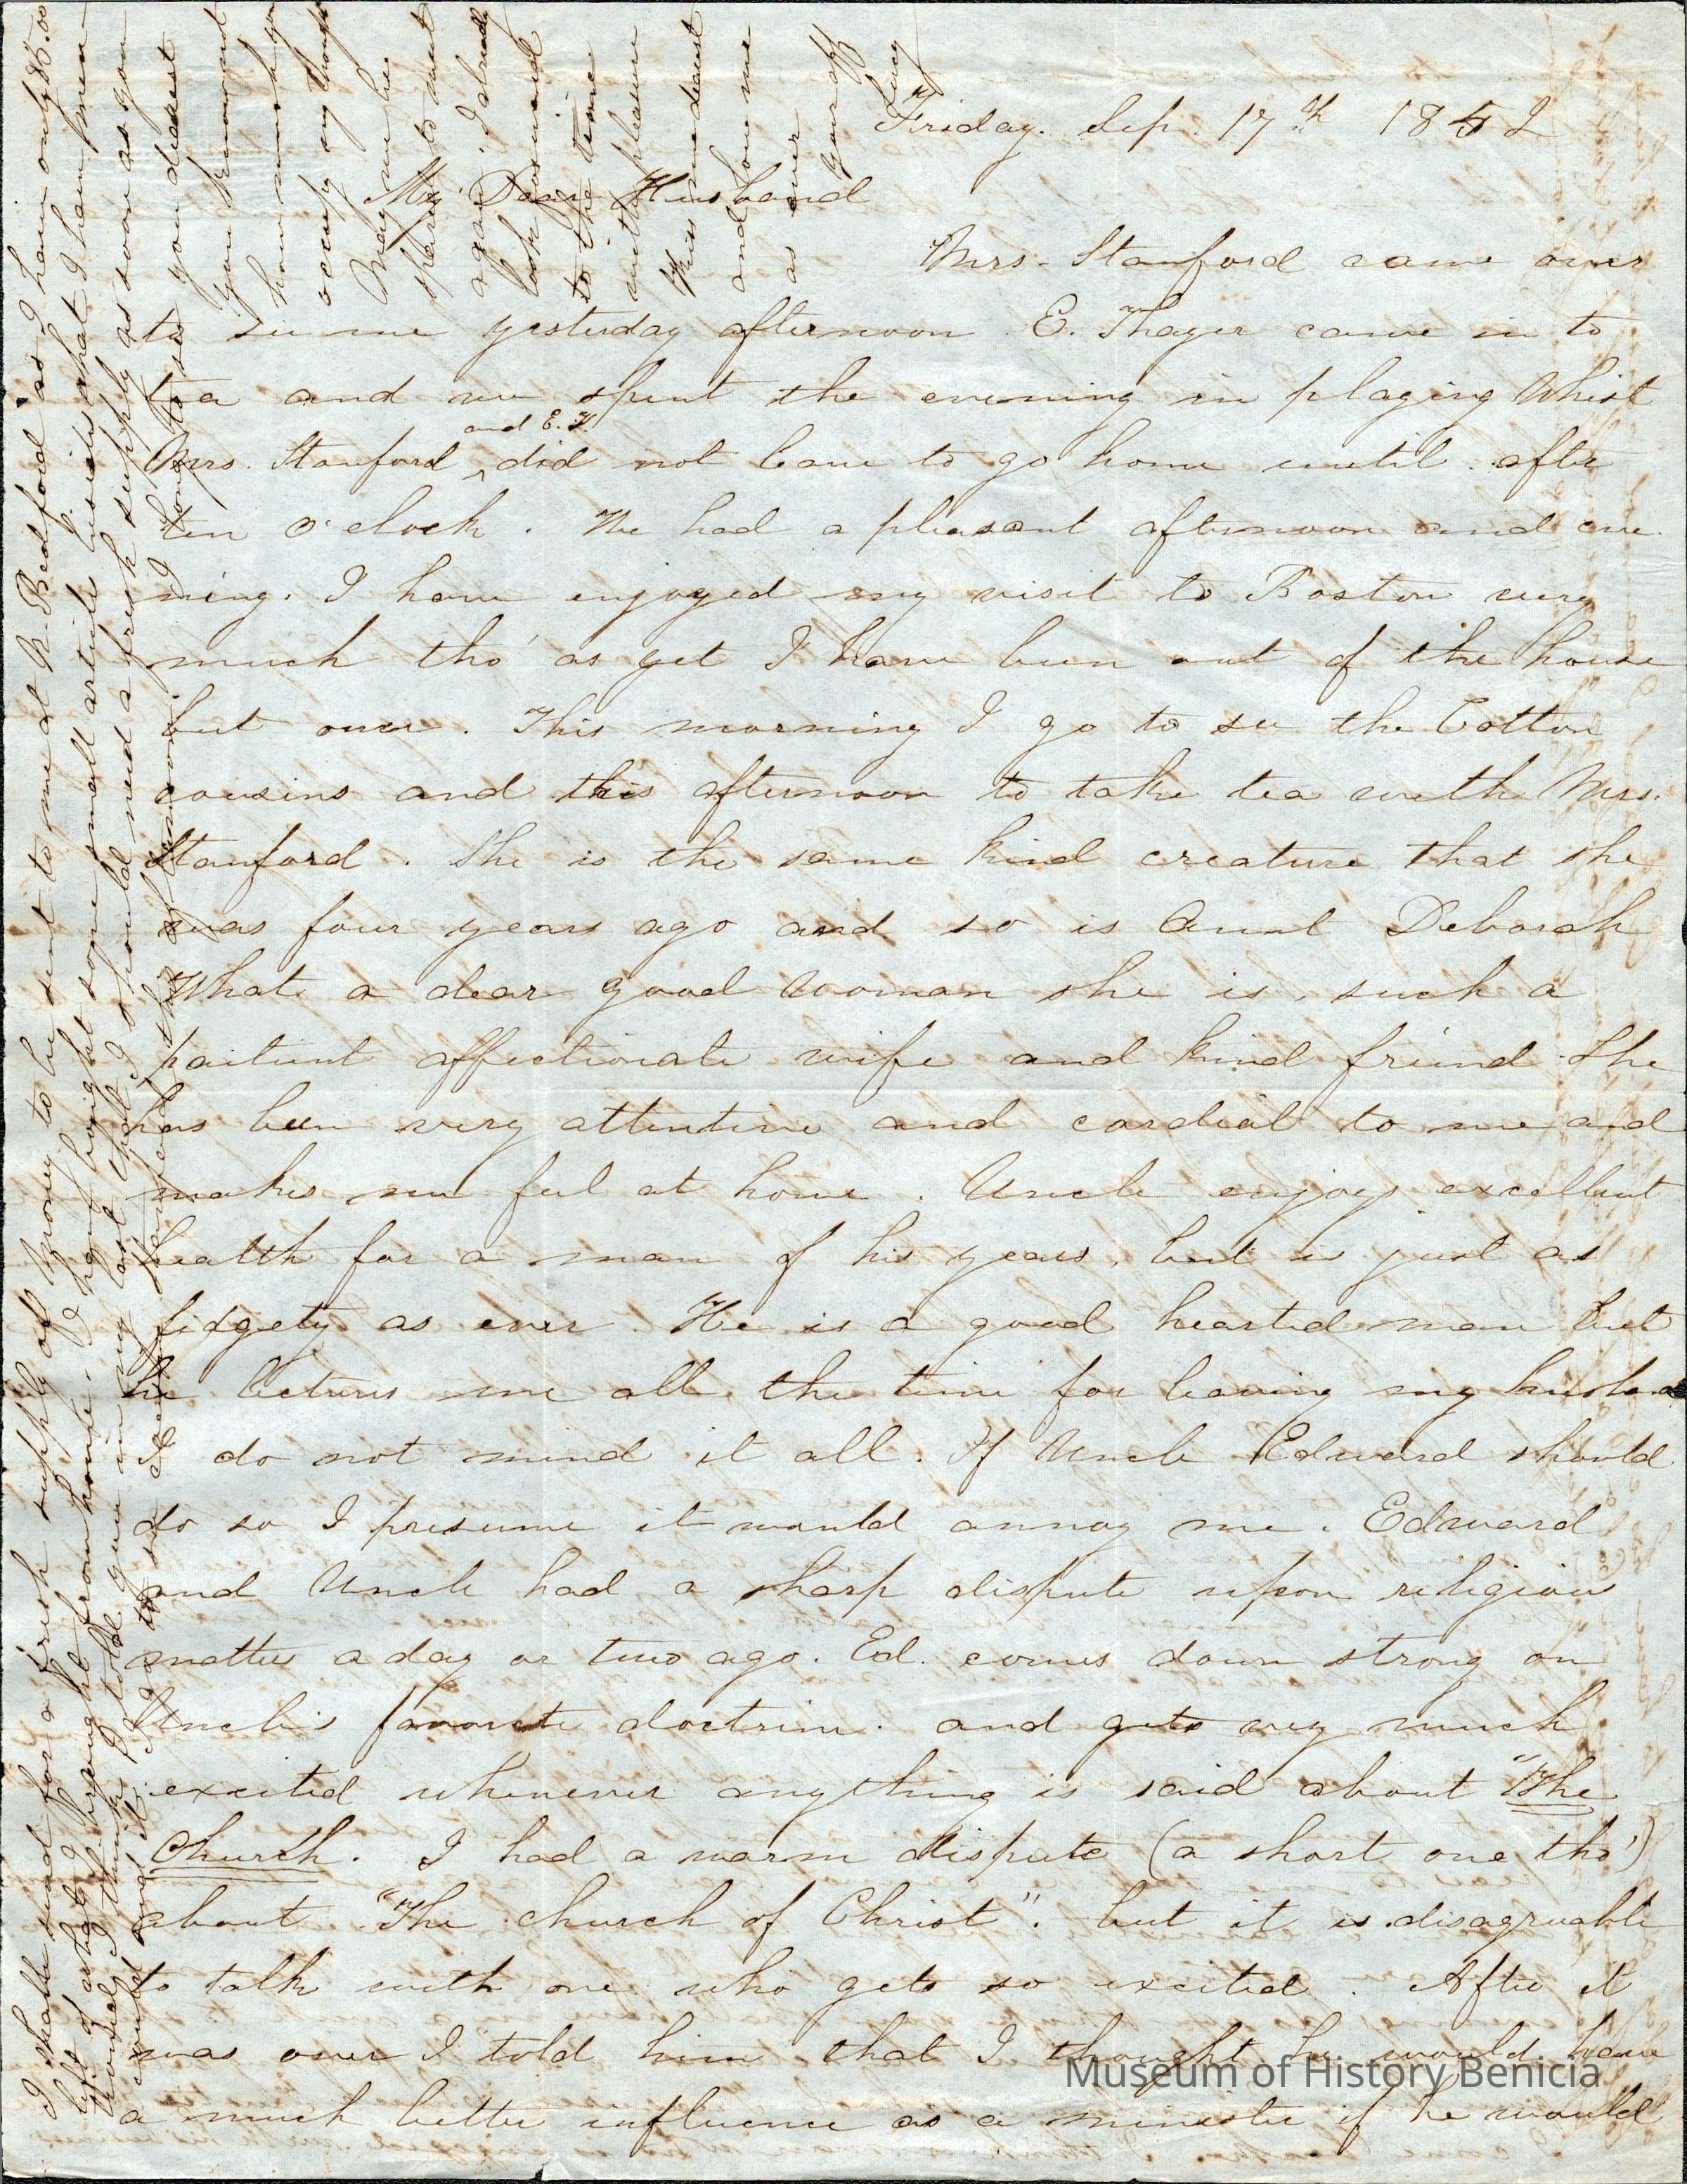 Friday. Sep. 17th 1852
My Dear Husband
Mrs. Stanford came over
to see me yesterday afternoon E. Thayer came in to
tea and we spent the evening in playing Whist
and E. T.
Mrs. Stanford ^ did not leave to go home until after
ten o'clock. We had a pleasant afternoon and eve
ning. I have enjoyed my visit to Boston very
much tho' as yet I have been out of the house
but once. This morning I go to see the Cotton
cousins and this afternoon to take tea with Mrs.
Stanford. She is the same kind creature that she
was four years ago and so is Aunt Deborah
What a dear good woman she is, such a
paitient affectionate wife and kind friend She
has been very attentive and cordial to me and
makes me feel at home. Uncle enjoys excellent
health for a man of his years, but is just as
fidgety as ever. He is a good hearted man but
he lectures me all the time for leaving my husband
I do not mind it all. If Uncle Edward should
do so I presume it would annoy me. Edward
and Uncle had a sharp dispute upon religious
matters a day or two ago. Ed. comes down strong on
Uncle's favorite doctrine. and gets very much
excited whenever anything is said about "The
Church. I had a warm dispute (a short one tho')
about "The church of Christ". but it is disagreeable
to talk with one who gets so excited. After it
was over I told him that I thought he would have
a much better influence as a minister if he would
I shall send for a fresh supply of money to be sent to me at N. Bedford as I have only $8.00
left of what I brought from home. I have bought some small articles besides what I have men
tioned I think I told you in my last that I should need a fresh supply as soon as you
could send it. I go to see Mrs. Stanford this afternoon. I long to see
you dearest
you know not
how much you
occupy my thoughts
May we be
spared to meet
again. I already
look forward
to the time
with pleasure
Kiss me dearest
and love me
as ever
yours aff
Lucy
Museum of History Benicia